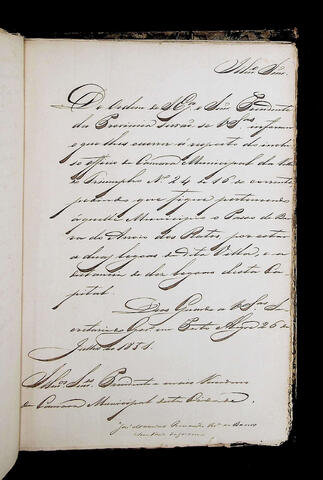 Illmo. Snrs.
De Ordem de S. Exa. o Snr. Presidente
da Provincia sirvão-se V. Sas. informar
o que lhes occorrer a respeito do incluso
officio da Camara Municipal da Villa
do Triumpho No. 24 de 16 do corrente
pedindo que fique pertencendo
áquelle Municipio o Passo da
do Arroio dos Ratos, por estar
a duas legoas da dita Villa, e a
distancia de dez legoas desta Ca-
pital.
Deos Guarde a V. Sas. Se-
cretaria do Governo em Porto Alegre 26 de
Julho de 1858.
Illmos. Snrs. Presidente e mais Vereadores
da Camara Municipal desta Cidade.
José